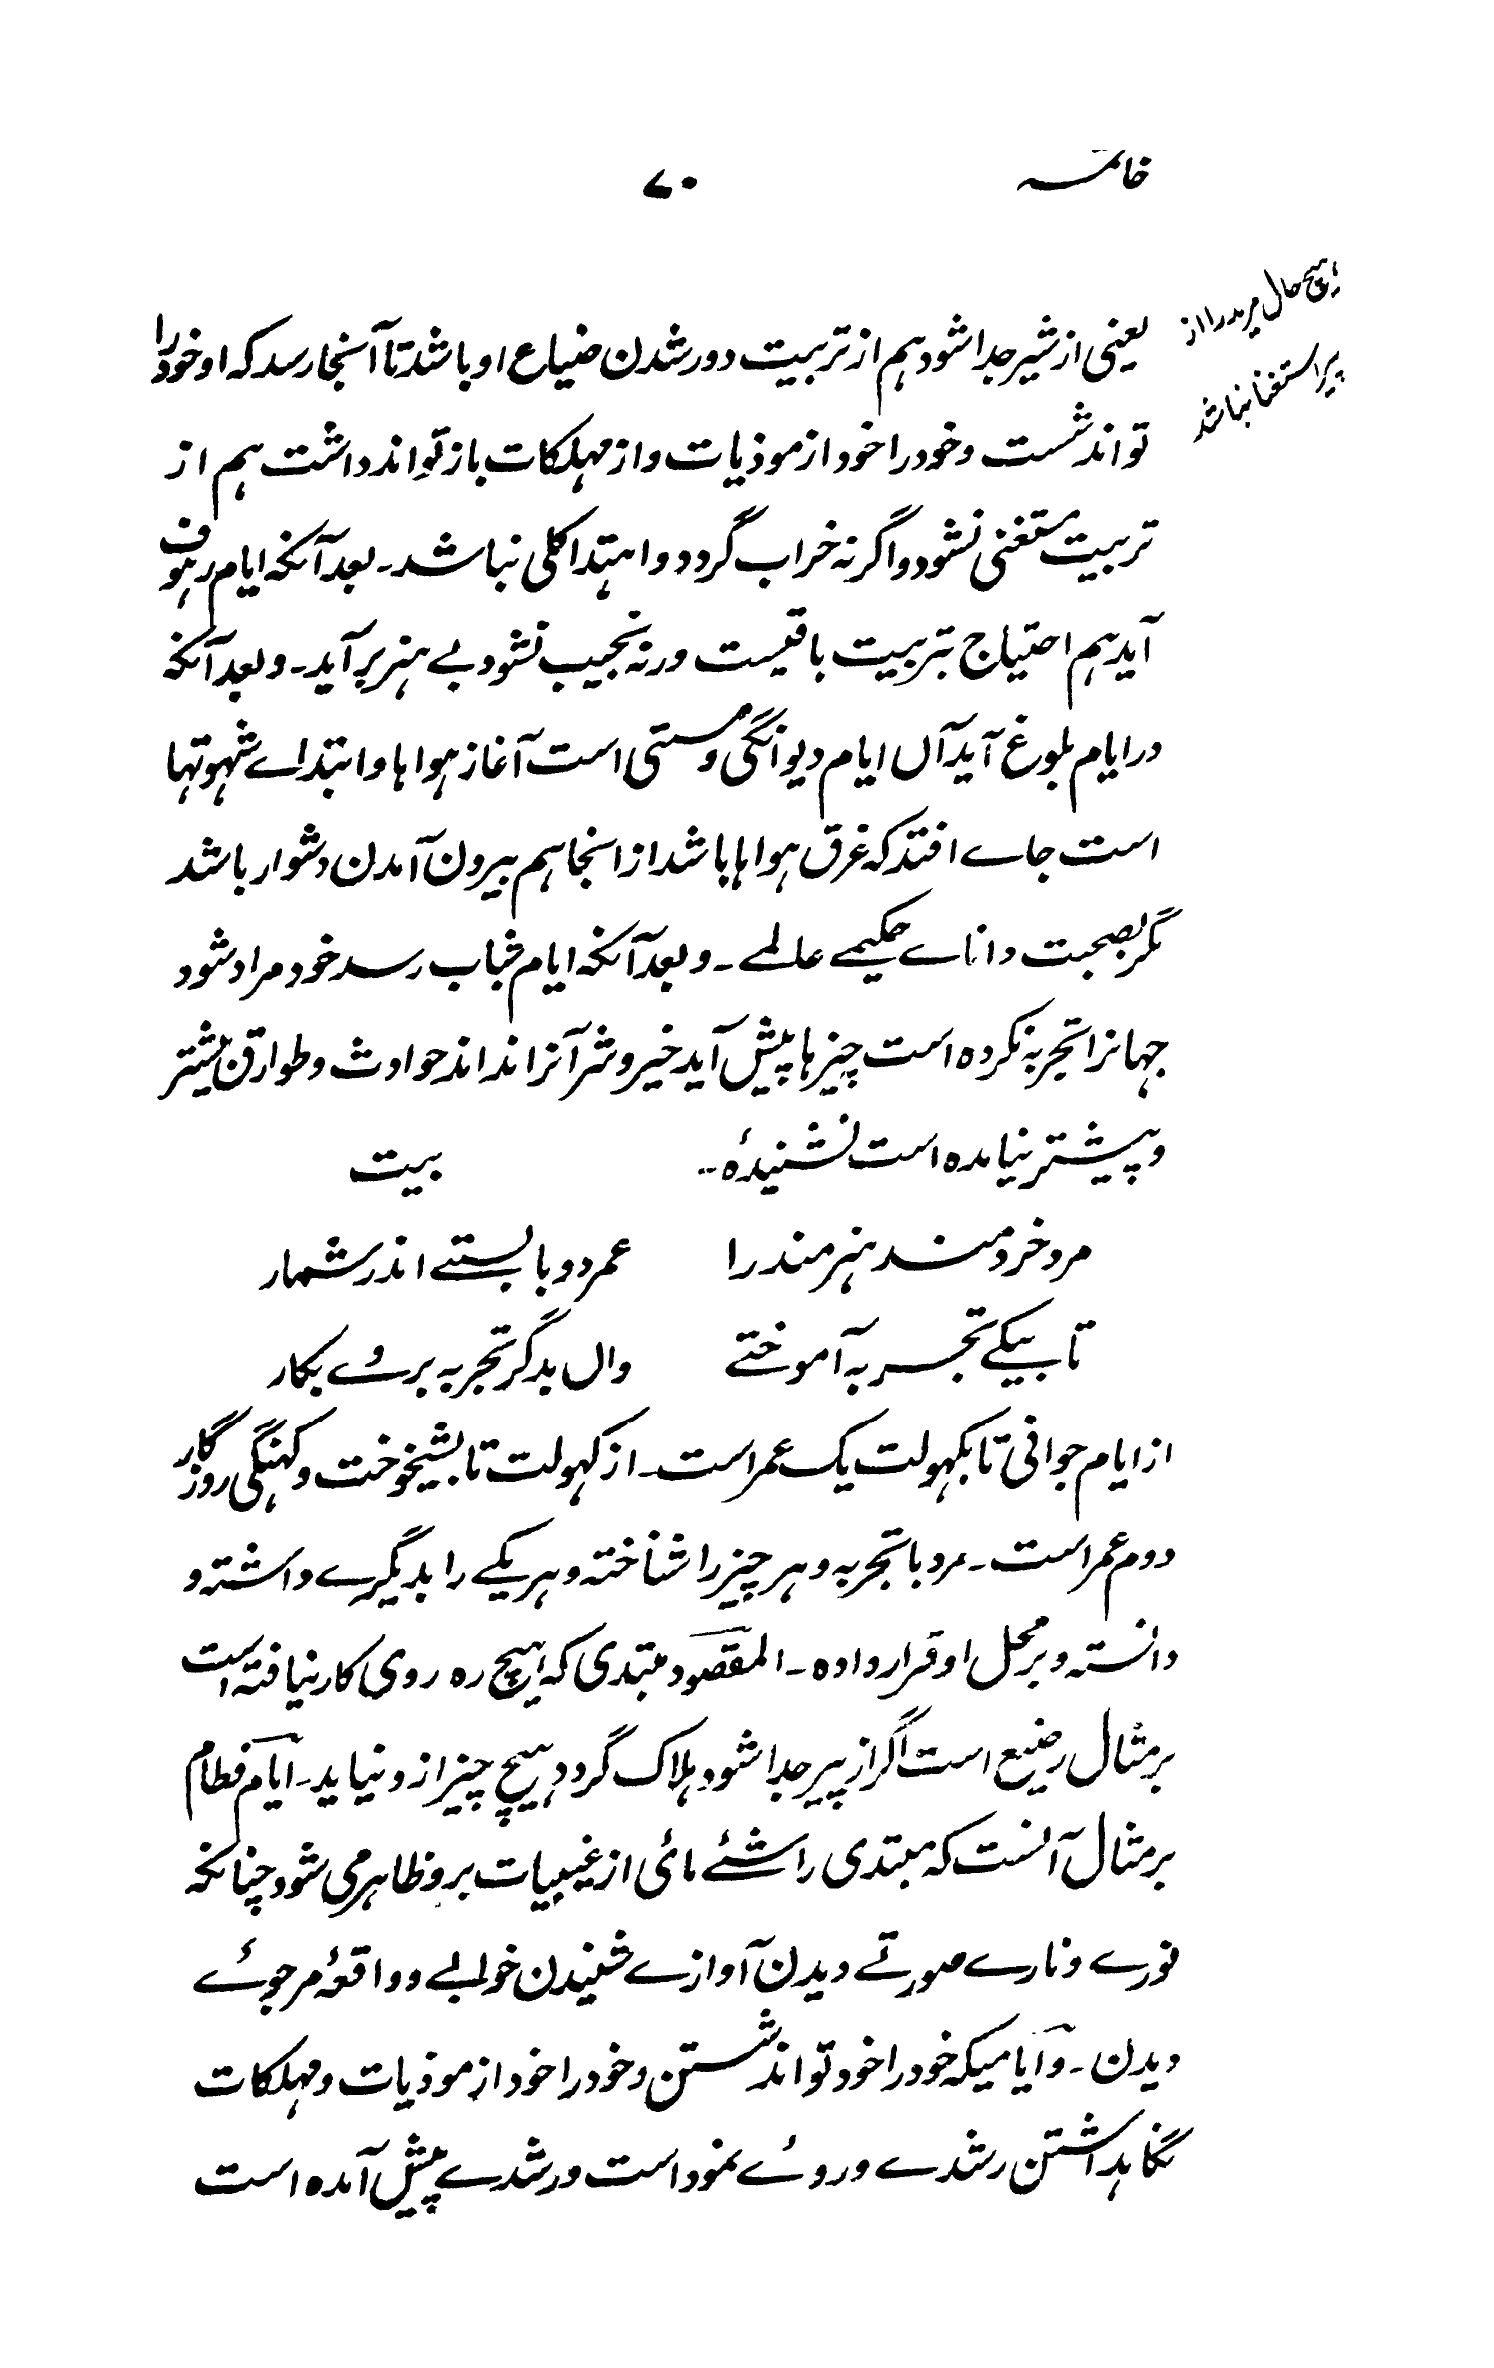 خاتمہ ۷۰
ہیچ حال مرید را از
پیر استغنا نباشد
یعنی از شیر جدا شود ہم از تربیت دور شدن ضیاع او باشد تا آنجا رسد کہ او خود را
تواند شست و خود را خود از موذیات و از مہلکات باز تواند داشت ہم از
تربیت مستغنی نشود و اگر نہ خراب گردد و اہتدا کلی نباشد ۔ بعد آنکہ ایام رہوف
آید ہم احتیاج بتربیت باقیست ورنہ نجیب نشود بے ہنر بر آید ۔ و بعد آنکہ
در ایام بلوغ آید آں ایام دیوانگی و مستی است آغاز ہواہا و ابتداے شہوتہا
است جاے افتد کہ غرق ہواہا باشد از انجا ہم بیرون آمدن دشوار باشد
مگر بصحبت داناے حکیمے عالمے ۔ و بعد آنکہ ایام شباب رسد خود مراد شود
جہانرا تجربہ نکردہ است چیزہا پیش آید خیر و شر آنرا نداند حوادث و طوارق بیشتر
و پیشتر نیامدہ است نشنیدۂ ۔۔ بیت
مرد خردمند ہنرمند را عمر دو بایستے اندر شمار
تا بیکے تجربہ آموختے واں بدگر تجربہ بردے بکار
از ایام جوانی تا بکہولت یک عمر است ۔ از کہولت تا بشیخوخت و کہنگی روزگار
دوم عمر است ۔ مرد با تجربہ و ہر چیز را شناختہ و ہر یکے را بدیگرے داشتہ و
دانستہ و بر محل او قرار دادہ ۔ المقصود مبتدی کہ ہیچ رہ روی کار نیافتہ است
بر مثال رضیع است اگر از پیر جدا شود ہلاک گردد ہیچ چیز از و نیاید ۔ ایام فطام
بر مثال آنست کہ مبتدی را شئے مائی از غیبیات برو ظاہر می شود چنانکہ
نورے و نارے صورتے دیدن آوازے شنیدن خوابے و واقعۂ مرجوئے
دیدن ۔ و ایامیکہ خود را خود تواند شستن و خود را خود از موذیات و مہلکات
نگاہداشتن رشدے و روئے نمود است و رشدے پیش آمدہ است